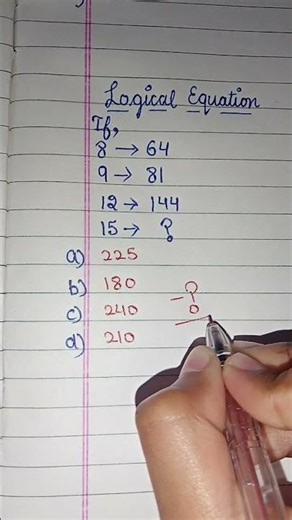 Logical Equation
If,
8 → 64
9 → 81
12 → 144
15 → ?
a) 225
b) 180
c) 240
d) 210
- ?
0